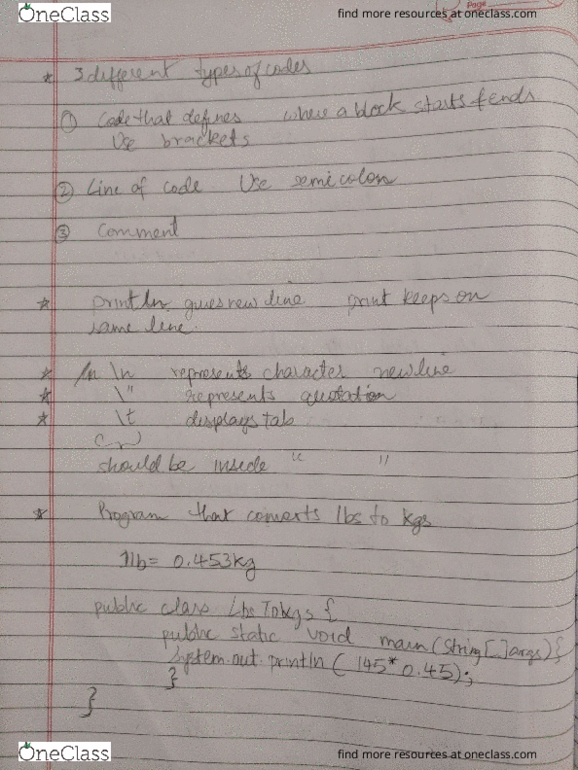 OneClass
find more resources at oneclass.com
Page
* 3 different types of codes
① Code that defines where a block starts & ends
Use brackets
② Line of code Use semicolon
③ Comment
* println gives new line print keeps on
same line.
* /n \n represents character newline
* \" represents quotation
* \t displays tab
should be inside " "
* Program that converts lbs to kgs
1lb = 0.453kg
public class LbsTokgs {
public static void main(String[]args){
System.out.println ( 145* 0.45);
}
}
OneClass
find more resources at oneclass.com